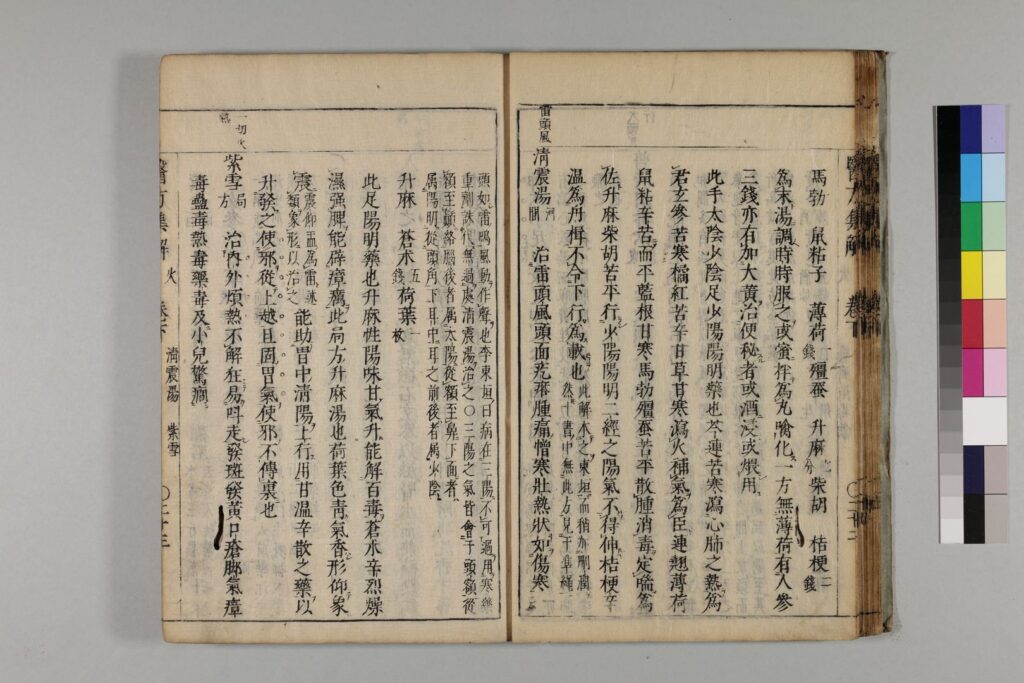 醫方集解 卷下
馬勃 鼠粘子 薄荷一錢 殭蠶 升麻七分 柴胡 桔梗二錢
為末湯調時時服之或蜜拌為丸噙化一方無薄荷有人參
三錢亦有加大黃治便秘者或酒浸或煨用
此手太陰少陰足少陽陽明藥也芩連苦寒瀉心肺之熱為
君玄參苦寒橘紅苦辛甘草甘寒瀉火補氣為臣連翹薄荷
鼠粘辛苦而平藍根甘寒馬勃殭蠶苦平散腫消毒定喘為
佐升麻柴胡苦平行少陽陽明二經之陽氣不得伸桔梗辛
溫為丹楫不令下行為載也此解本之東垣而稍亦刪潤
然十書中無此方見于準繩
雷頭風
清震湯河間 治雷頭風頭面疙瘩腫痛憎寒壯熱狀如傷寒
頭如雷鳴風動作聲也李東垣曰病在三陽不可過用寒藥
重劑誅伐無過處清震湯治之〇三陽之氣皆會于頭額從
額至顛絡腦後者屬太陽從額至鼻下面者
屬陽明從頭角下耳中耳之前後者屬少陰
升麻 蒼朮五錢 荷葉一枚
此足陽明藥也升麻性陽味甘氣升能解百毒蒼朮辛烈燥
濕强脾能辟瘴癘此局方升麻湯也荷葉色青氣香形仰象
震震仰盂為雷誅類象形以治之能助胃中清陽上行用甘溫辛散之藥以
升發之使邪從上越且固胃氣使邪不傳裏也
一切火
紫雪局方 治內外煩熱不解狂易叫走發斑發黃口瘡脚氣瘴
毒蠱毒熱毒藥毒及小兒驚癇
醫方集解 火 卷下 清震湯 紫雪 〇二十三